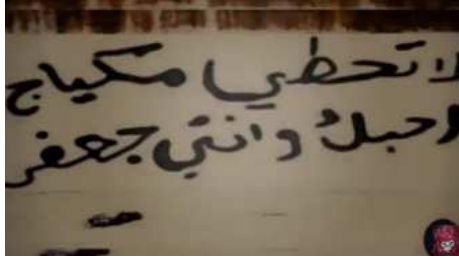 لا تحطي مكياج
احبك وانتي جعفر